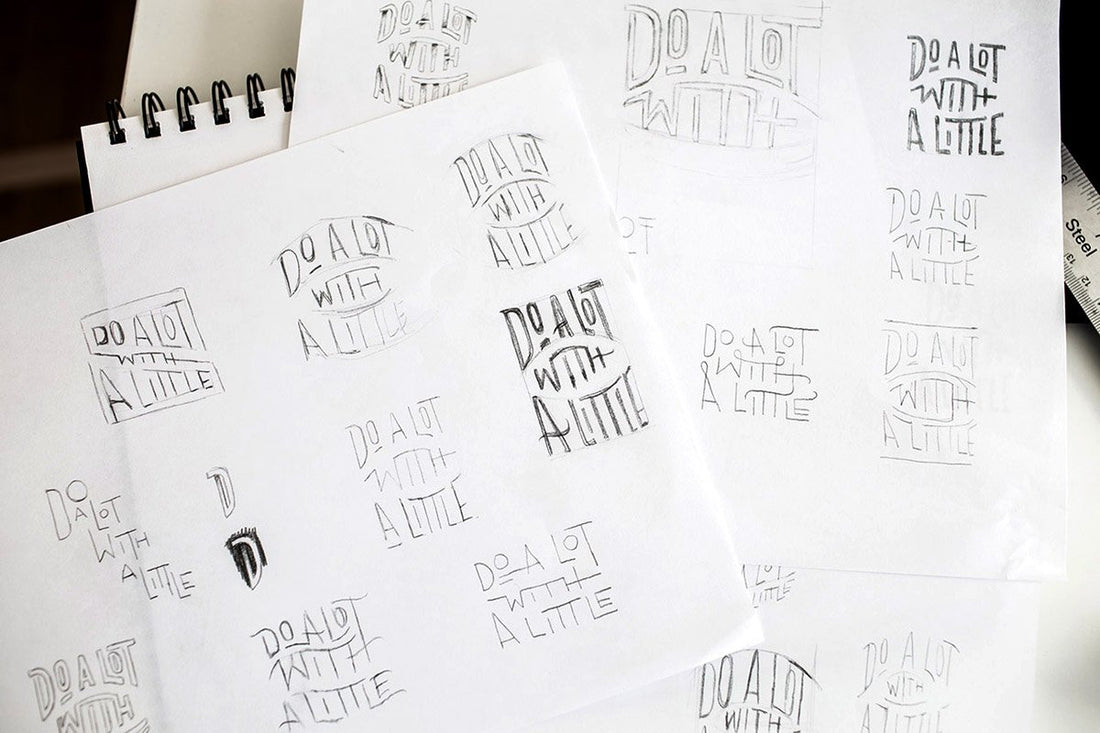 DO A LOT
WITH
A LITTLE
DO A LOT
WITH
DO A LOT
WITH
A LITTLE
DO A LOT
WITH
A LITTLE
DO A LOT
WITH
A LITTLE
DO A LOT
WITH
A LITTLE
DO A LOT
WITH
A LITTLE
Steel
DO A LOT
WITH
A LITTLE
DO A LOT
WITH
A LITTLE
DO A LOT
WITH
A LITTLE
DO A LOT
WITH
A LITTLE
DO A LOT
WITH
A LITTLE
D
D
DO A LOT
WITH
A LITTLE
DO A LOT
WITH
A LITTLE
DO A LOT
WITH
A LITTLE
DO A LOT
WITH
DO A LOT
WITH
DO A LOT
WITH
A LITTLE